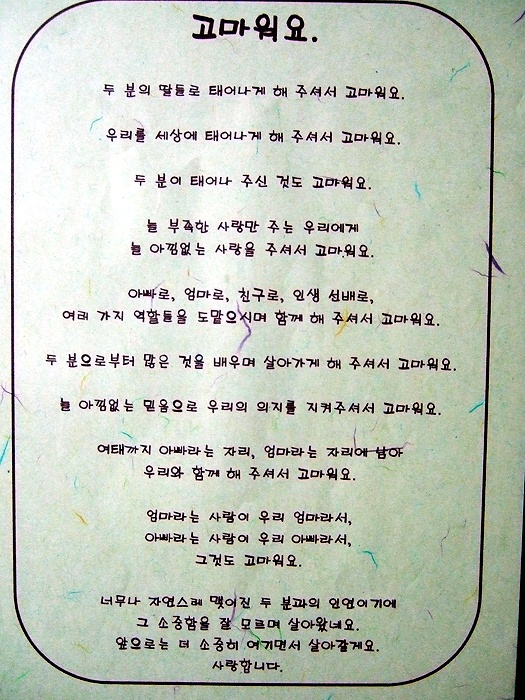 고마워요.
두 분의 딸들로 태어나게 해 주셔서 고마워요.
우리를 세상에 태어나게 해 주셔서 고마워요.
두 분이 태어나 주신 것도 고마워요.
늘 부족한 사랑만 주는 우리에게
늘 아낌없는 사랑을 주셔서 고마워요.
아빠로, 엄마로, 친구로, 인생 선배로,
여러 가지 역할들을 도맡으시며 함께 해 주셔서 고마워요.
두 분으로부터 많은 것을 배우며 살아가게 해 주셔서 고마워요.
늘 아낌없는 믿음으로 우리의 의지를 지켜주셔서 고마워요.
여태까지 아빠라는 자리, 엄마라는 자리에 남아
우리와 함께 해 주셔서 고마워요.
엄마라는 사람이 우리 엄마라서,
아빠라는 사람이 우리 아빠라서,
그것도 고마워요.
너무나 자연스레 맺어진 두 분과의 인연이기에
그 소중함을 잘 모르며 살아왔네요.
앞으로는 더 소중히 여기면서 살아갈게요.
사랑합니다.